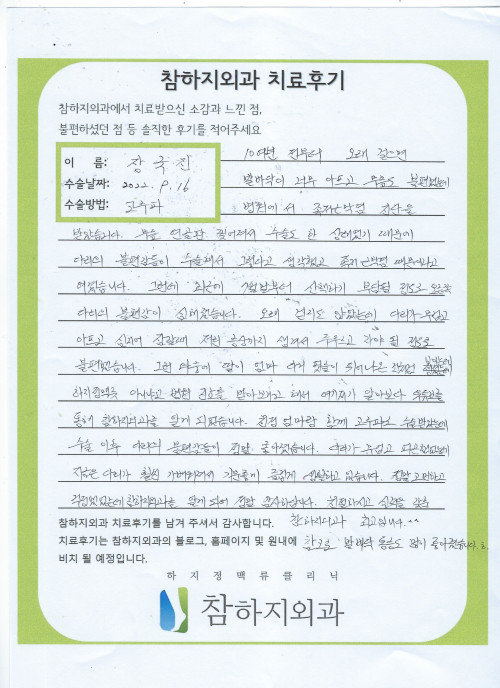 참하지외과 치료후기
참하지외과에서 치료받으신 소감과 느낀 점,
불편하셨던 점 등 솔직한 후기를 적어주세요
이 름: 장국진
수술날짜: 2022. 9. 16
수술방법: 고주파
10여년 전부터 오래 걸으면
발바닥이 너무 아프고 무릎도 불편했는데
병원에서 족저근막염 진단을
받았습니다. 무릎 연골판 찢어져서 수술도 한 상태였기 때문에
다리의 불편감들이 수술해서 그렇다고 생각했고 족저근막염 때문이라고
여겼습니다. 그런데 최근에 산책하기 부담될 정도로 오른쪽
다리의 불편감이 심해졌습니다. 오래 걷지도 않았는데 다리가 무겁고
아프고 증상까지 생겨서 주무르고 자야 될 정도로
불편했습니다. 그런 와중에 엄마 다리 핏줄이
하지정맥류 아니냐고 병원 진료를 받아보자고 해서 여기저기 알아보다 유튜브를
통해 참하지외과를 알게 되었습니다. 함께 고주파로 수술 받았는데
수술 이후 다리의 불편감들이 정말 좋아졌습니다. 다리가 무겁고
지금은 다리가 훨씬 가벼워져서 즐겁게 생활하고 있습니다. 정말 고민하고
걱정했었는데 참하지외과를 알게 되어 정말 감사합니다. 친절하시고 실력을 갖춘
참하지외과 치료후기를 남겨 주셔서 감사합니다. 참하지외과 최고입니다.^^
치료후기는 참하지외과의 블로그, 홈페이지 및 원내에 참고로 발바닥 통증도 많이 좋아졌습니다.
비치 될 예정입니다.
하지정맥류클리닉
참하지외과